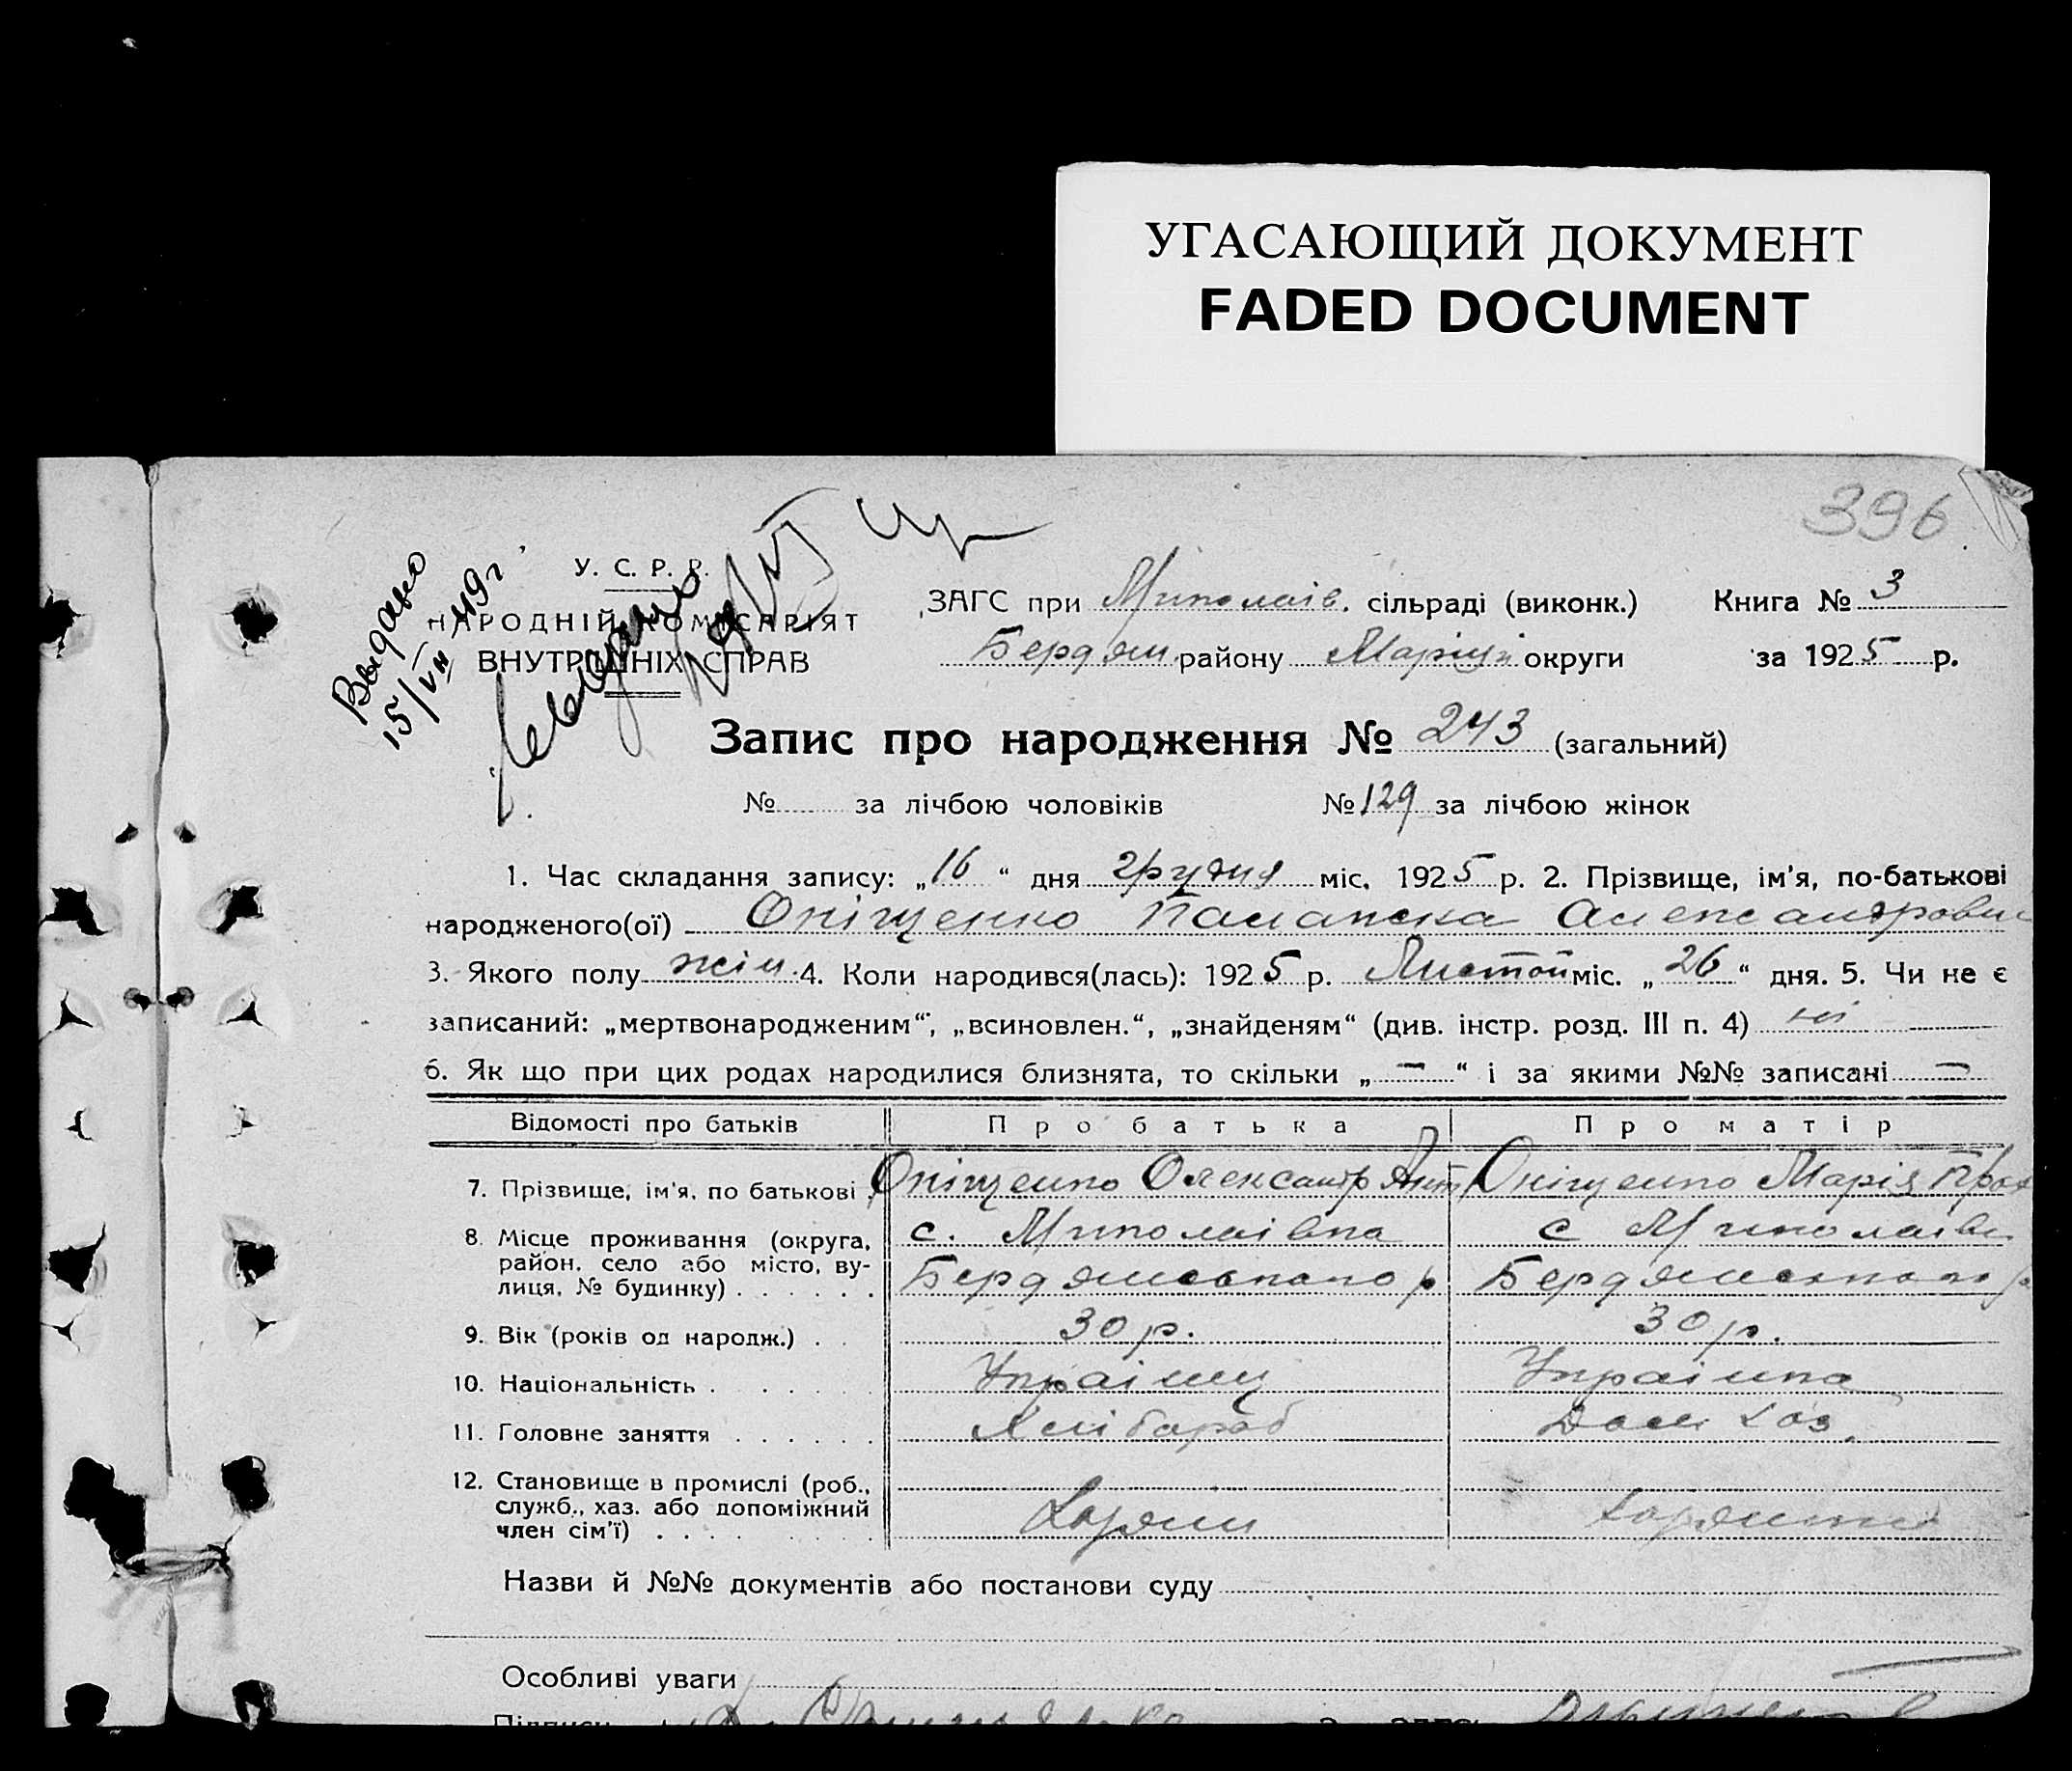 УГАСАЮЩИЙ ДОКУМЕНТ
FADED DOCUMENT
396
Выдано
15/VII 49 г
У. С. Р. Р.
НАРОДНІЙ КОМІСАРІЯТ
ВНУТРІШНІХ СПРАВ
ЗАГС при Миколаїв. сільраді (виконк.) Книга № 3
Бердян. району Маріуп. округи за 1925 р.
Запис про народження № 243 (загальний)
№ за лічбою чоловіків № 129 за лічбою жінок
1. Час складання запису: „16“ дня грудня міс. 1925 р. 2. Прізвище, ім'я, по-батькові
народженого(ої) Оніщенко Палажка Александровн
3. Якого полу жін. 4. Коли народився(лась): 1925 р. Листоп міс. „26“ дня. 5. Чи не є
записаний: „мертвонародженим“, „всиновлен.“, „знайденям“ (див. інстр. розд. III п. 4) ні
6. Як що при цих родах народилися близнята, то скільки „—“ і за якими №№ записані —
Відомості про батьків Про батька Про матір
7. Прізвище, ім'я, по батькові Оніщенко Олександр Ант Оніщенко Марія Прох
8. Місце проживання (округа, с. Миколаівка с Миколаівк
район, село або місто, ву-
лиця, № будинку) Бердянського р Бердянського р
9. Вік (років од народж.) 30 р. 30 р.
10. Національність Украінц Украінка
11. Головне заняття Хлібороб Дом хоз.
12. Становище в промислі (роб.,
служб., хаз. або допоміжний
член сім'ї) Хазяїн
Назви й №№ документів або постанови суду
Особливі уваги
Підписи